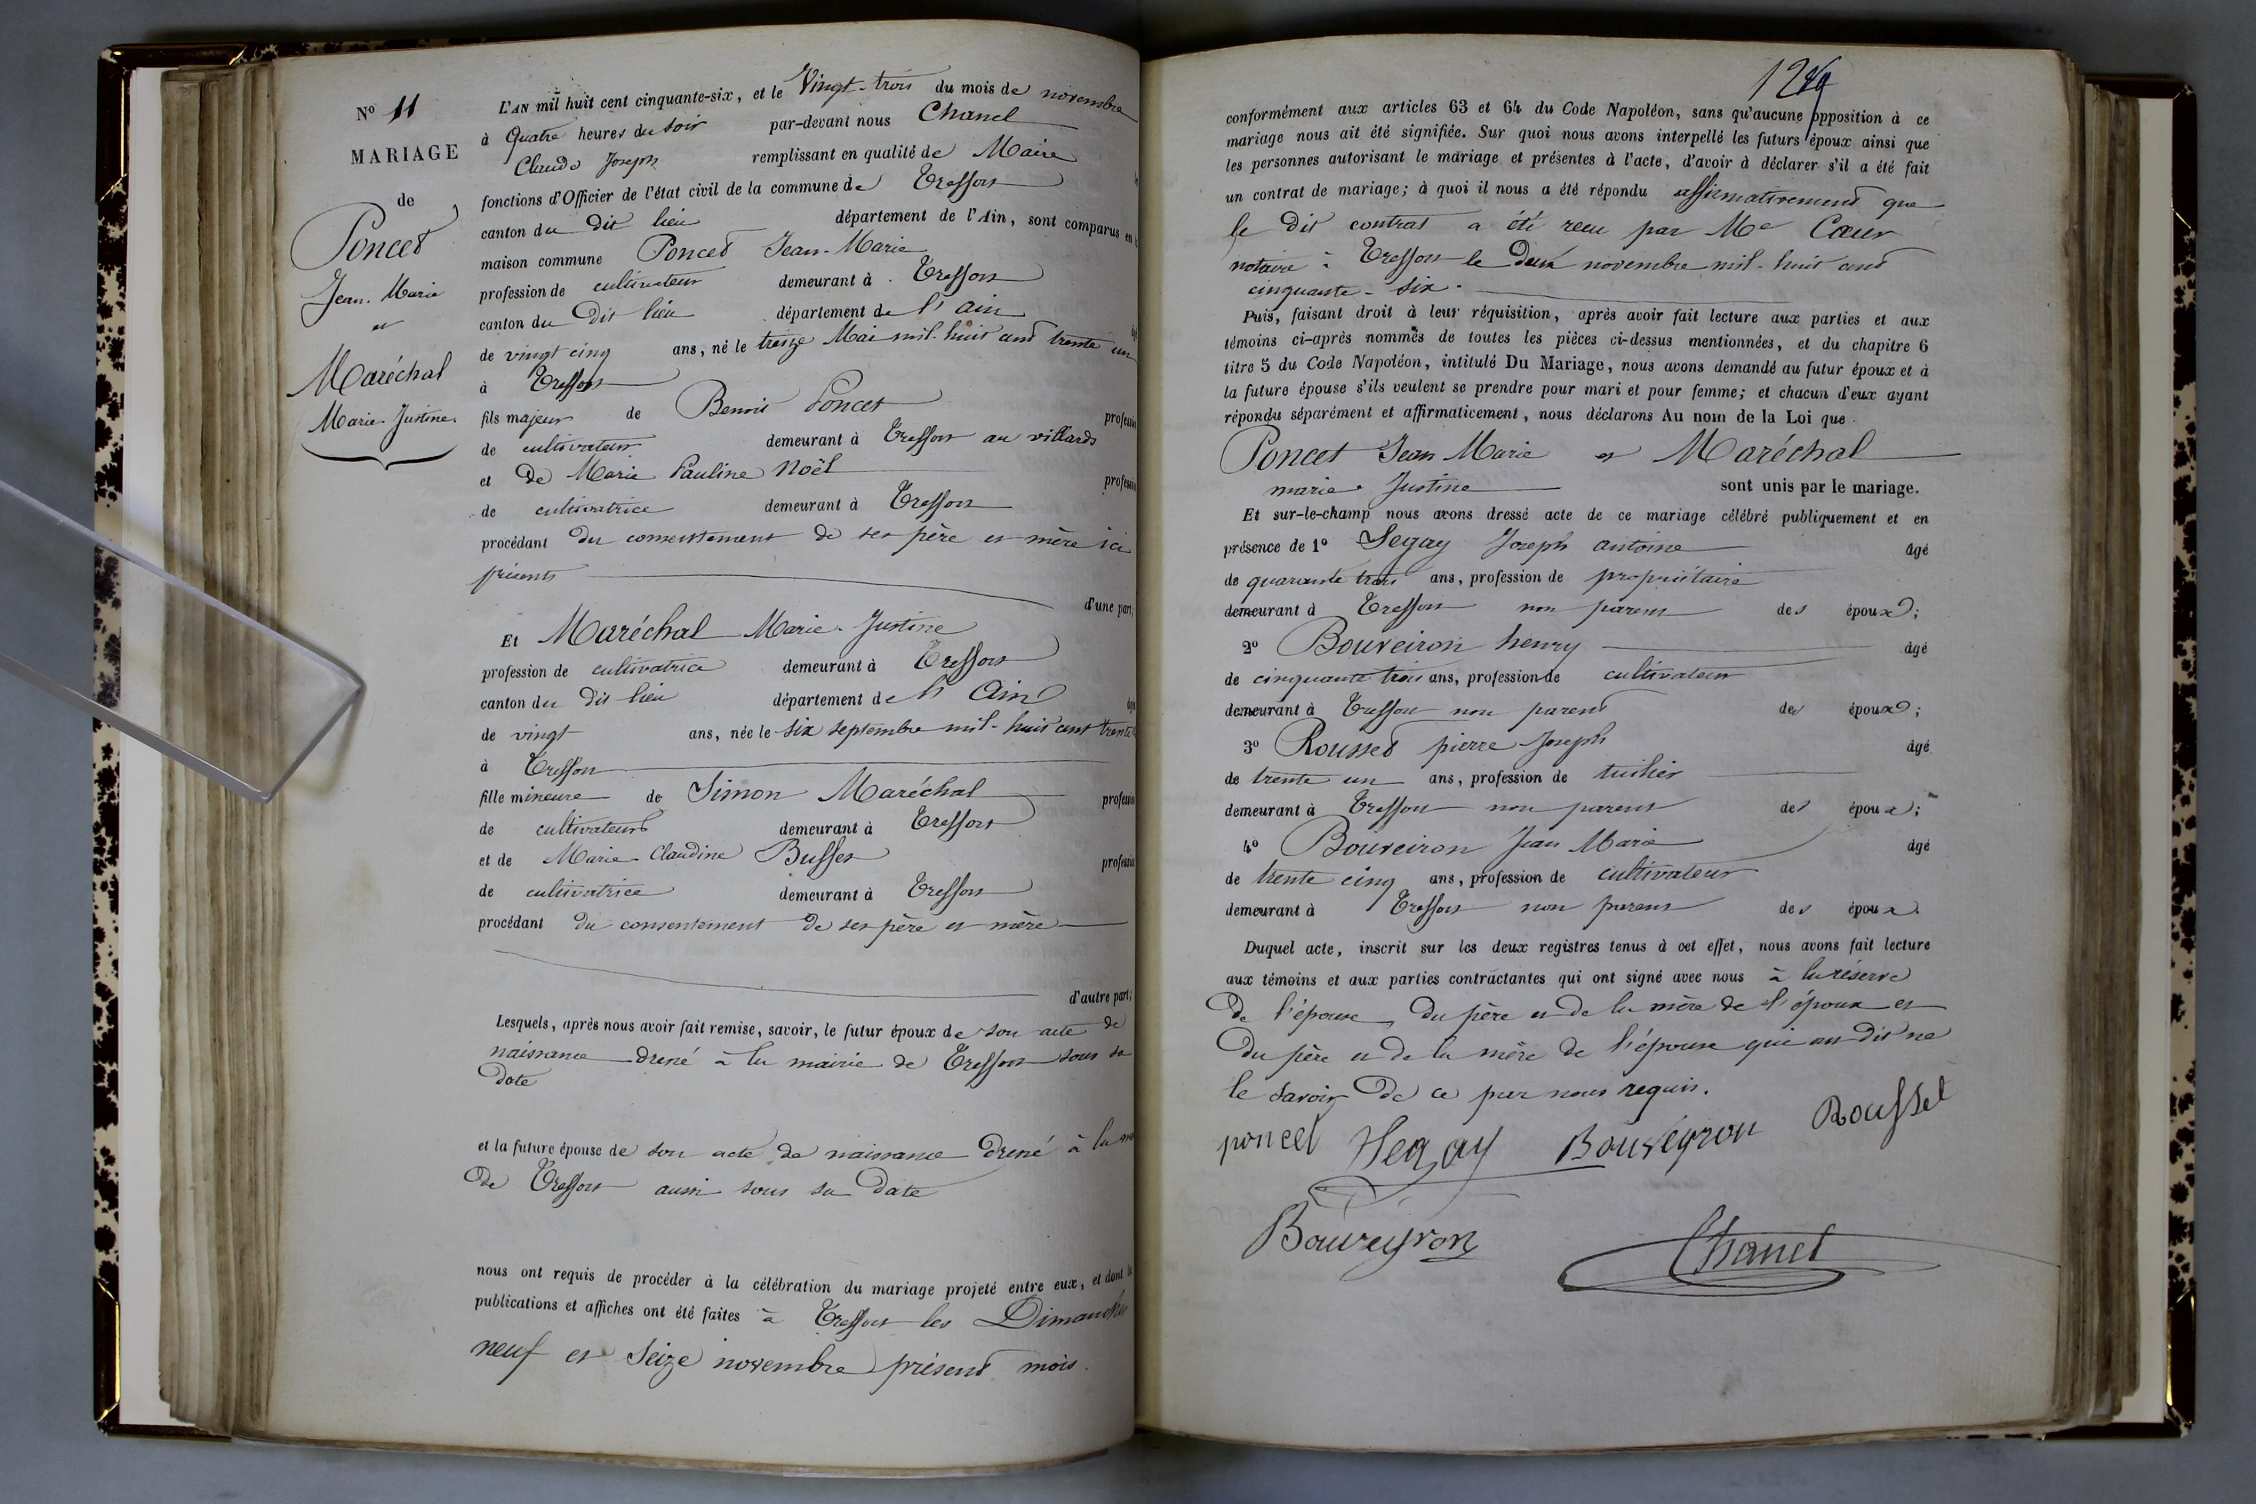 Nº 11
MARIAGE
de
Poncet
Jean-Marie
et
Maréchal
Marie-Justine
L'AN mil huit cent cinquante-six, et le Vingt-trois du mois de novembre
à quatre heures du soir par-devant nous Chanel
Claude Joseph remplissant en qualité de Maire
fonctions d'Officier de l'état civil de la commune de Treffort
canton du dit lieu département de l'Ain, sont comparus en
maison commune Poncet Jean-Marie
profession de cultivateur demeurant à Treffort
canton du dit lieu département de l'ain
de vingt cinq ans, né le treize Mai mil-huit cent trente un
à Treffort
fils majeur de Benoit Poncet profession
de cultivateur demeurant à Treffort au villards
et de Marie Pauline Noël profession
de cultivatrice demeurant à Treffort
procédant du consentement de ses père et mère ici
présents
d'une part;
Et Maréchal Marie-Justine
profession de cultivatrice demeurant à Treffort
canton du dit lieu département de l'Ain
de vingt ans, née le six septembre mil-huit cent trente
à Treffort
fille mineure de Simon Maréchal profession
de cultivateur demeurant à Treffort
et de Marie-Claudine Buffet profession
de cultivatrice demeurant à Treffort
procédant du consentement de ses père et mère
d'autre part;
Lesquels, après nous avoir fait remise, savoir, le futur époux de son acte de
naissance dressé à la mairie de Treffort sous sa
date
et la future épouse de son acte de naissance dressé à la
de Treffort aussi sous sa date
nous ont requis de procéder à la célébration du mariage projeté entre eux, et dont
publications et affiches ont été faites à Treffort les Dimanches
neuf et seize novembre présent mois.
conformément aux articles 63 et 64 du Code Napoléon, sans qu'aucune opposition à ce
mariage nous ait été signifiée. Sur quoi nous avons interpellé les futurs époux ainsi que
les personnes autorisant le mariage et présentes à l'acte, d'avoir à déclarer s'il a été fait
un contrat de mariage; à quoi il nous a été répondu affirmativement que
le dit contrat a été reçu par Me Cœur
notaire à Treffort le deux novembre mil-huit cent
cinquante-six.
Puis, faisant droit à leur réquisition, après avoir fait lecture aux parties et aux
témoins ci-après nommés de toutes les pièces ci-dessus mentionnées, et du chapitre 6
titre 5 du Code Napoléon, intitulé Du Mariage, nous avons demandé au futur époux et à
la future épouse s'ils veulent se prendre pour mari et pour femme; et chacun d'eux ayant
répondu séparément et affirmativement, nous déclarons Au nom de la Loi que
Poncet Jean Marie et Maréchal
marie-Justine sont unis par le mariage.
Et sur-le-champ nous avons dressé acte de ce mariage célébré publiquement et en
présence de 1º Segay Joseph antoine âgé
de quarante trois ans, profession de propriétaire
demeurant à Treffort non parent des époux;
2º Bouveiron henry âgé
de cinquante trois ans, profession de cultivateur
demeurant à Treffort non parent des époux;
3º Rousset pierre-Joseph âgé
de trente un ans, profession de tuilier
demeurant à Treffort non parent des époux;
4º Bouveiron Jean Marie âgé
de trente cinq ans, profession de cultivateur
demeurant à Treffort non parent des époux.
Duquel acte, inscrit sur les deux registres tenus à cet effet, nous avons fait lecture
aux témoins et aux parties contractantes qui ont signé avec nous à la réserve
de l'épouse, du père et de la mère de l'époux et
du père et de la mère de l'épouse qui ont dit ne
le savoir de ce par nous requis.
poncet Segay Bouvéyron Rousset
Bouveyron Chanel